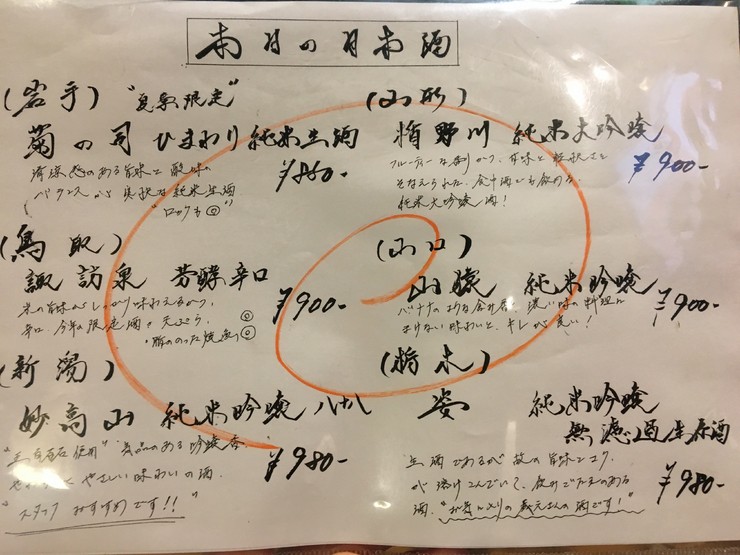 本日の日本酒
(岩手) "夏季限定"
菊の司 ひまわり 純米生酒
清涼感のある旨味と酸味の
バランスがよく爽快な純米生酒
"ロックも◎"
¥860-
(鳥取)
諏訪泉 芳醇辛口
米の旨味がしっかり味わえるがつ、
辛口、今年の限定酒で天ぷら、◎
・脂ののった焼魚◎
¥900-
(新潟)
妙高山 純米吟醸 八十八
使用" 気品のある吟醸香。
やさしい味わいの酒。
"スタッフ おすすめです!!"
¥980-
(山形)
楯野川 純米大吟醸
フルーティーな香りかつ、甘味と軽快さを
そなえられた、食中酒でも飲める
純米大吟醸酒!
¥900-
(山口)
山猿 純米吟醸
バナナのような含み香、濃い味の料理に
まけない味わいと、キレが良い!
¥900-
(栃木)
姿 純米吟醸
無濾過生原酒
生酒であるが故の旨味とコク
が溶けこんでいて、飲みごたえのある
酒。"お気に入りの蔵元さんの酒です!"
¥980-